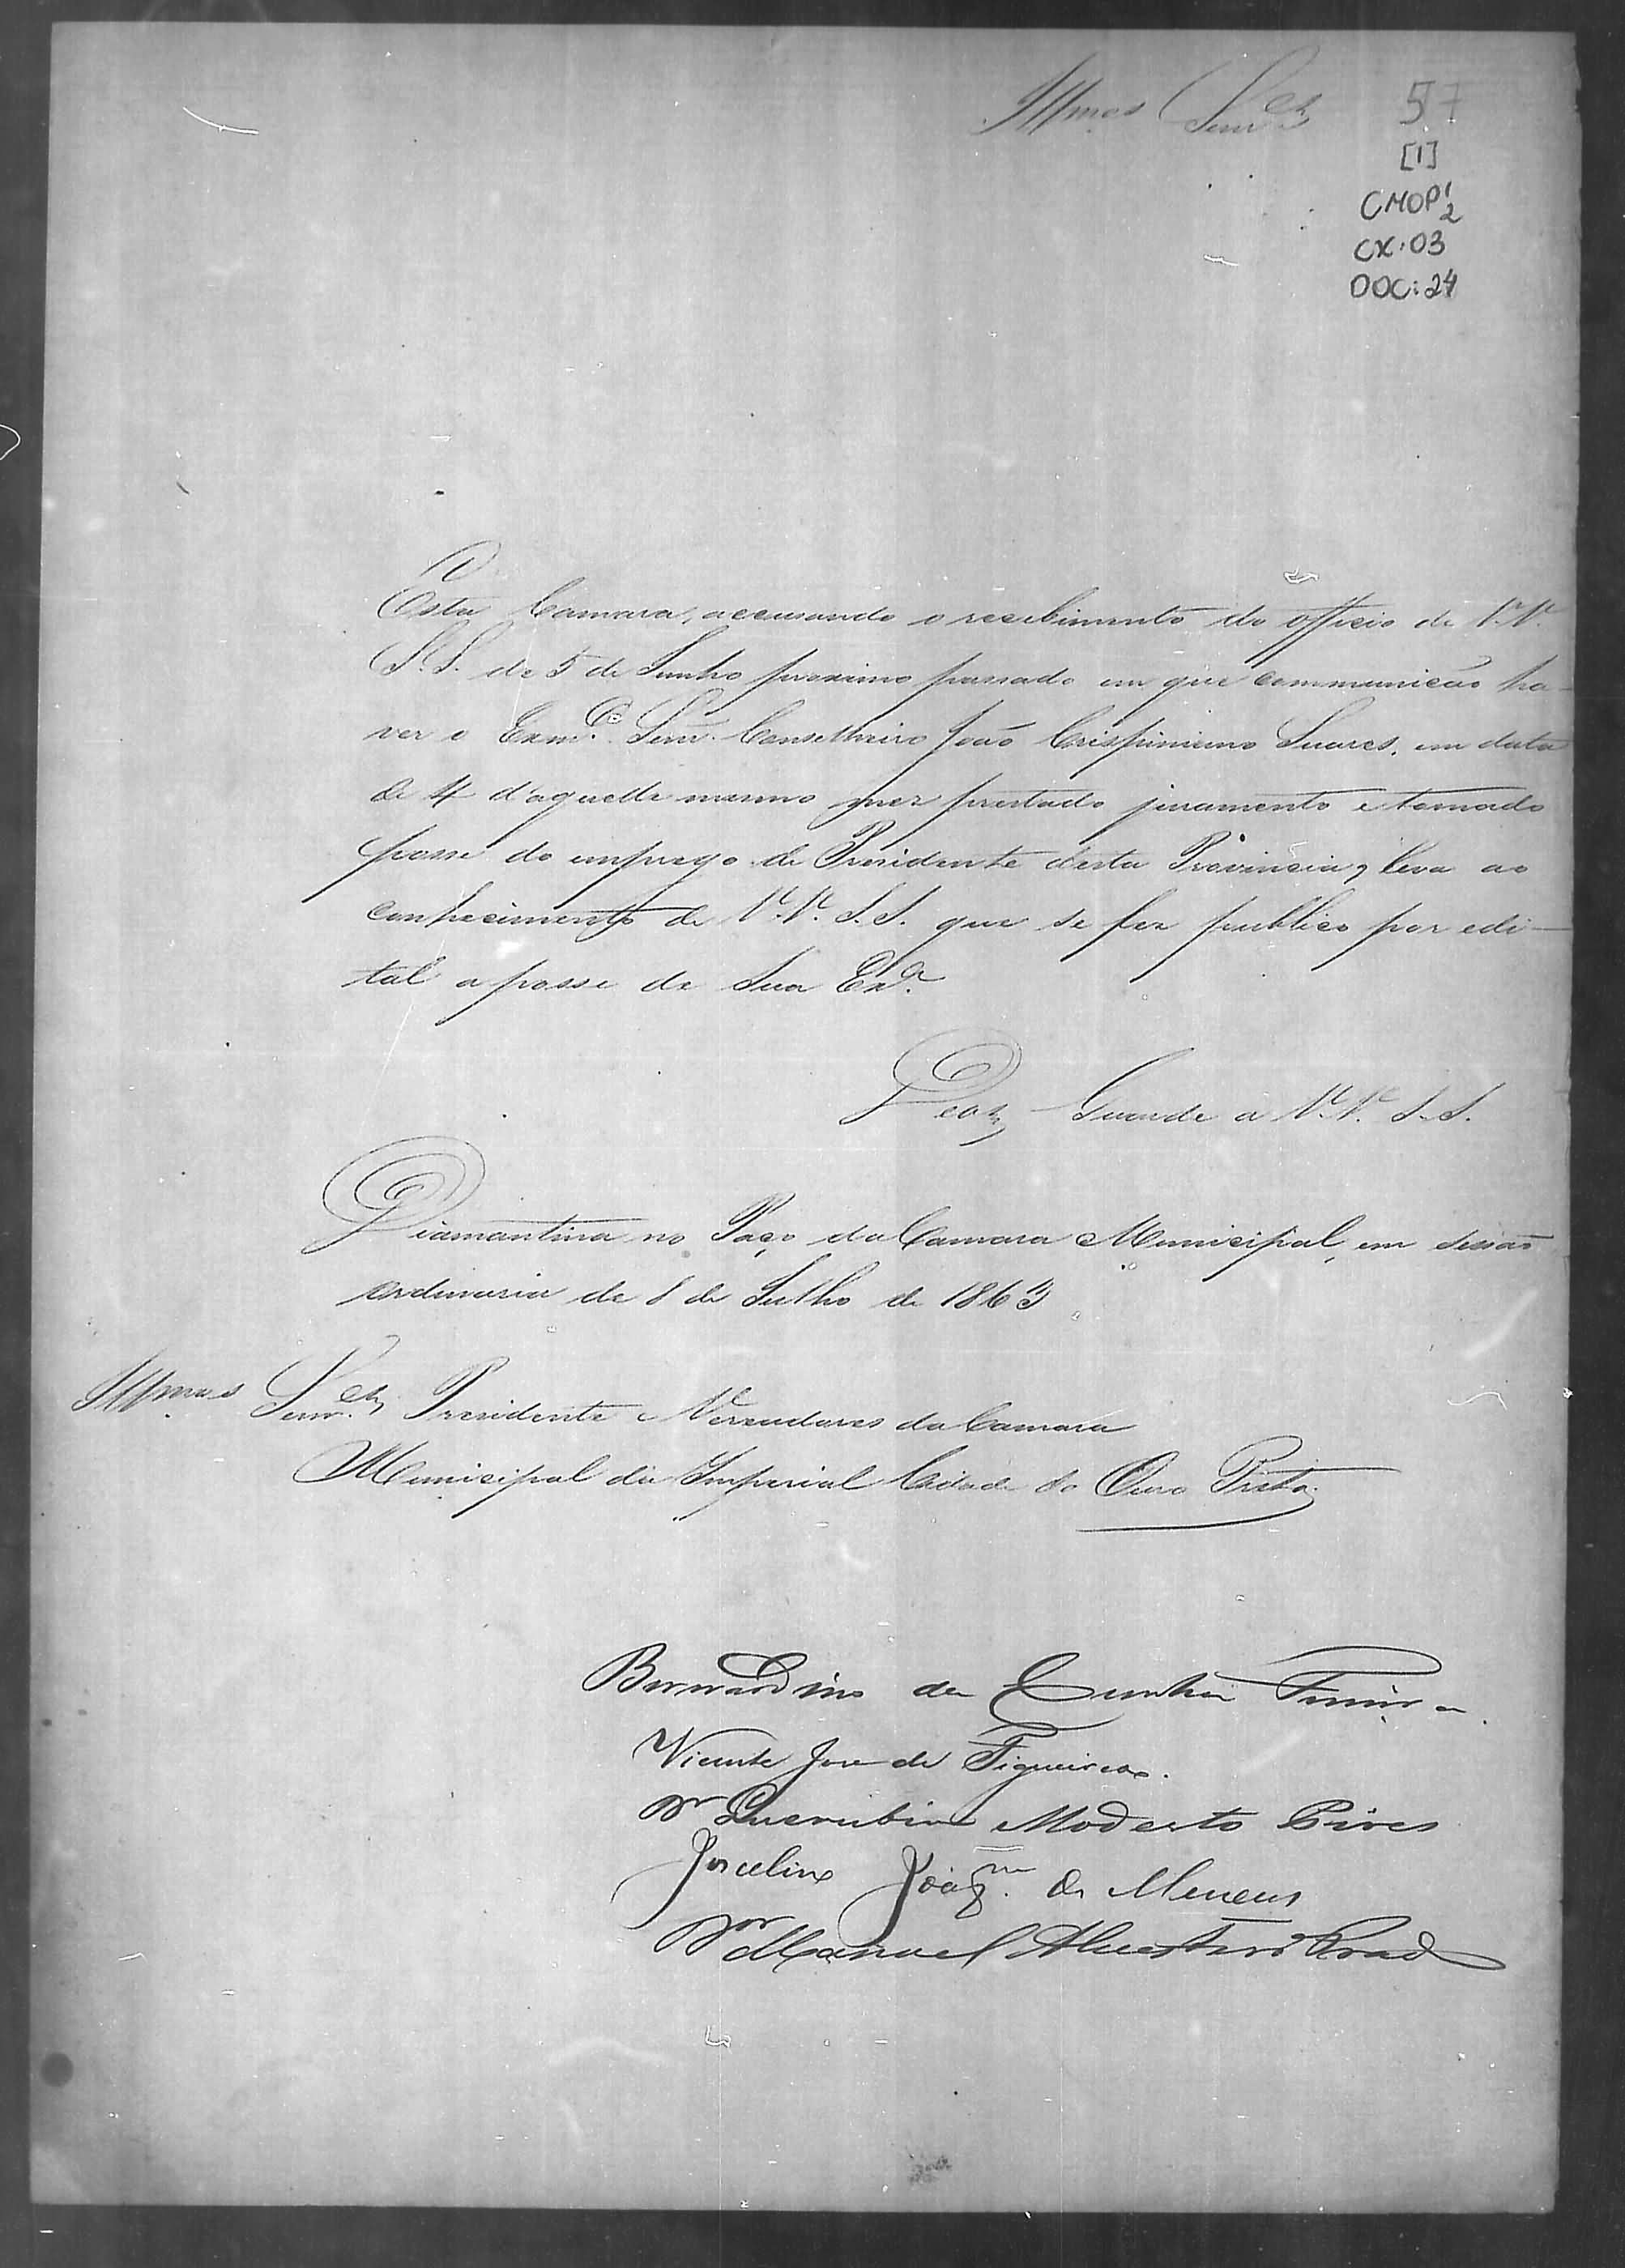 Illmos Senres
57
[1]
CMOP 1/2
CX: 03
DOC: 24
Esta Camara, accusando o recebimento do officio de V.V.
S.S. de 5 de Junho proximo passado em que communicão ha-
ver o Exmo. Senr. Conselheiro João Crispiniano Soares, em data
de 4 d'aquelle mesmo mez prestado juramento e tomado
posse do emprego de Presidente desta Provincia, leva ao
conhecimento de V.V. S.S. que se fez publico por edi-
tal a posse de Sua Exa.
Deos Guarde a V.V. S.S.
Diamantina no Paço da Camara Municipal, em sessão
ordinaria de 8 de Julho de 1863
Illmos Senres. Presidente e Vereadores da Camara
Municipal da Imperial Cidade do Ouro Preto.
Bernardino da Cunha
Vicente José de Figueiredo.
Dr Querubino Modesto Pires
Jocelino Joaqm. de Menezes
Dor Manoel